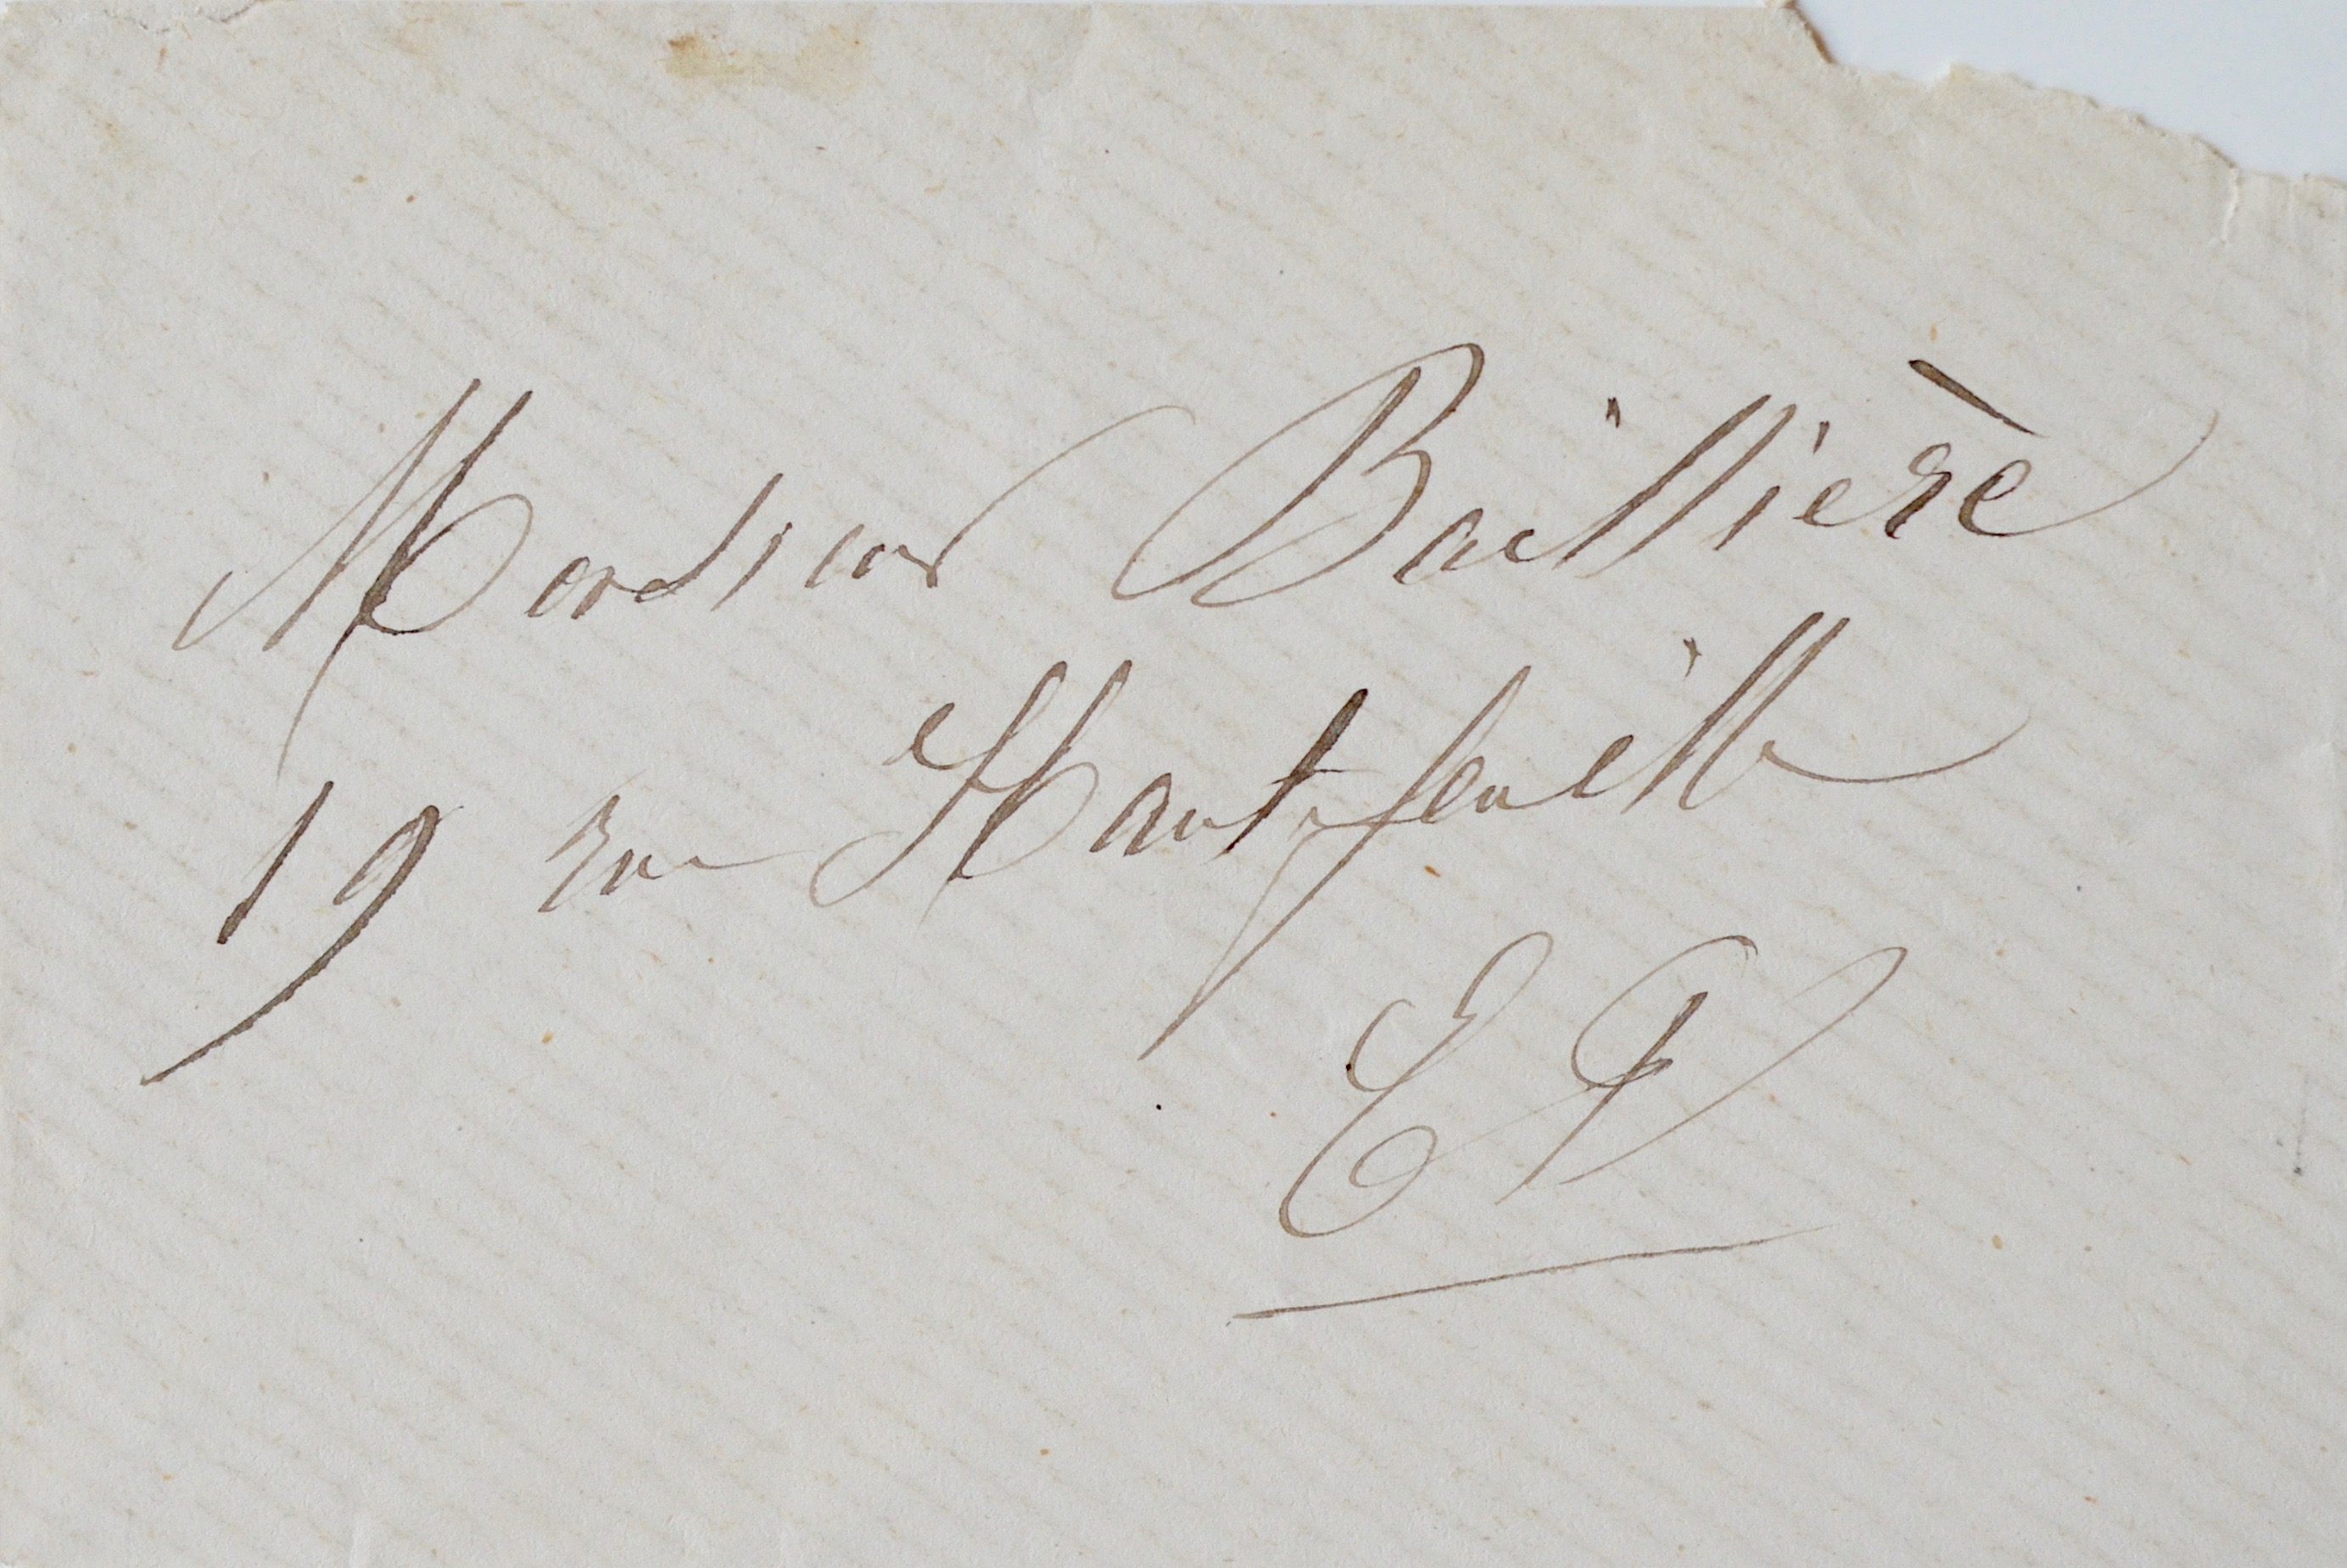 Monsieur Baillière
19 rue Hautefeuille
EV